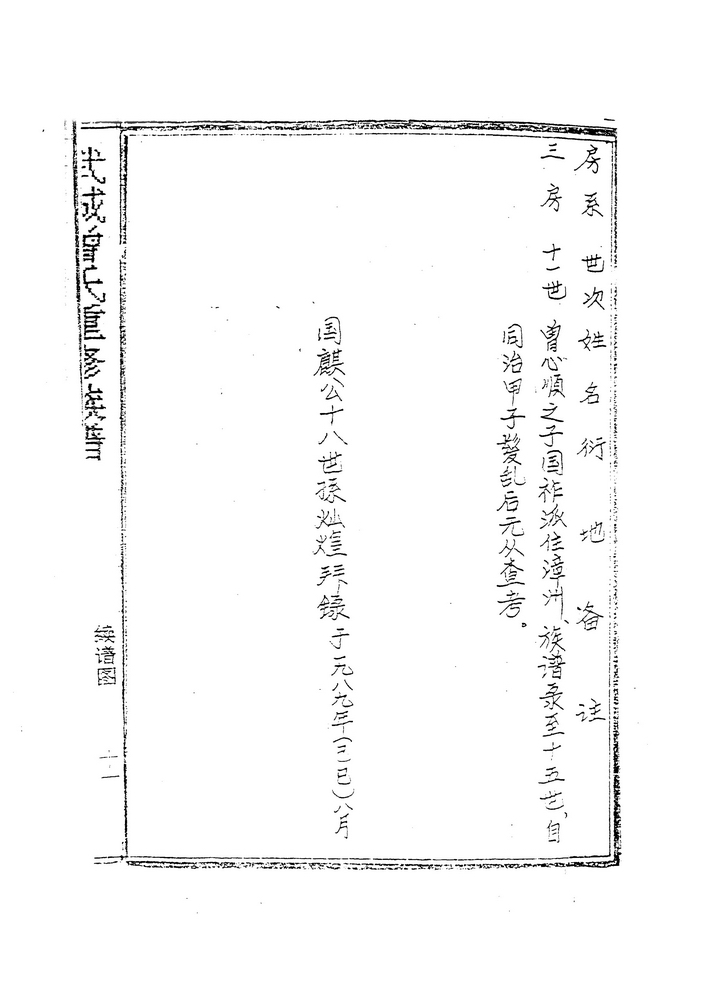 房系 世次 姓名 衍地 备註
三房 十一世 曾心順之子国祚派住漳州、族谱录至十五世、自
同治甲子髮乱后元从查考。
国麒公十八世孫灿煌拜録于一九八九年(己巳)八月
续谱图
十一